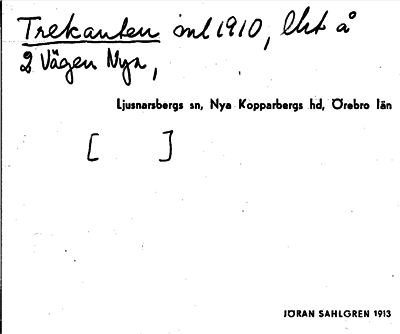 Trekanten
2 Vägen Nya,
Ljusnarsbergs sn, Nya Kopparbergs hd, Örebro län
[ ]
JÖRAN SAHLGREN 1913